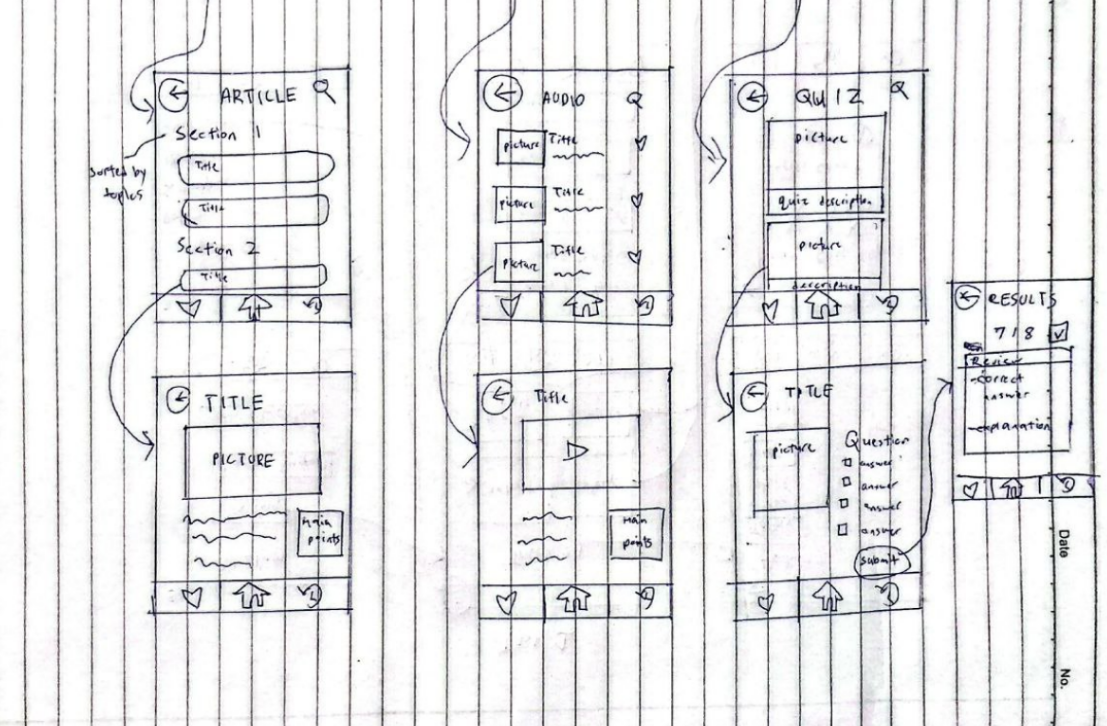 ARTICLE
Section 1
sorted by
topics
Title
Title
Section 2
Title
TITLE
PICTURE
Main
points
AUDIO
picture
Title
picture
Title
picture
Title
Title
Main
points
QUIZ
picture
quiz description
picture
description
TITLE
picture
Question
answer
answer
answer
answer
submit
RESULTS
7/8
Review
-correct
answer
-explanation
Date
No.